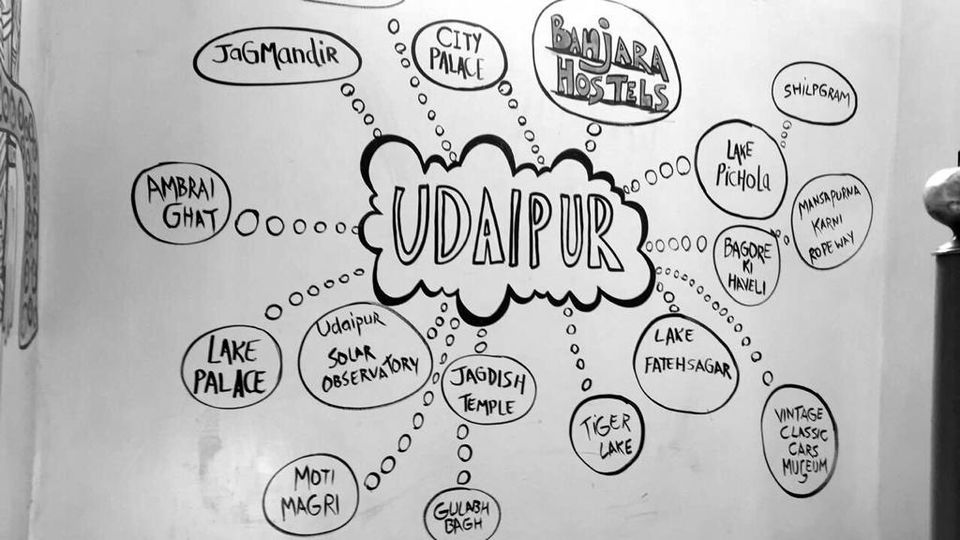 JaGMandiR
CITY
PALACE
BANjARA
HOSTELS
SHILPGRAM
LAKE
PicHOLa
AMBRAI
GHAT
MANSAPURNA
KARNI
ROPEWAY
BAGORE
KI
HAVELI
UDAIPUR
LAKE
PALACE
Udaipur
SOLAR
OBSERVATORY
JAGDISH
TEMPLE
LAKE
FATEHSAGAR
TiGER
LAKE
VINTAGE
CLASSIC
CARS
MUSEUM
MOTI
MAGRI
GULABH
BAGH